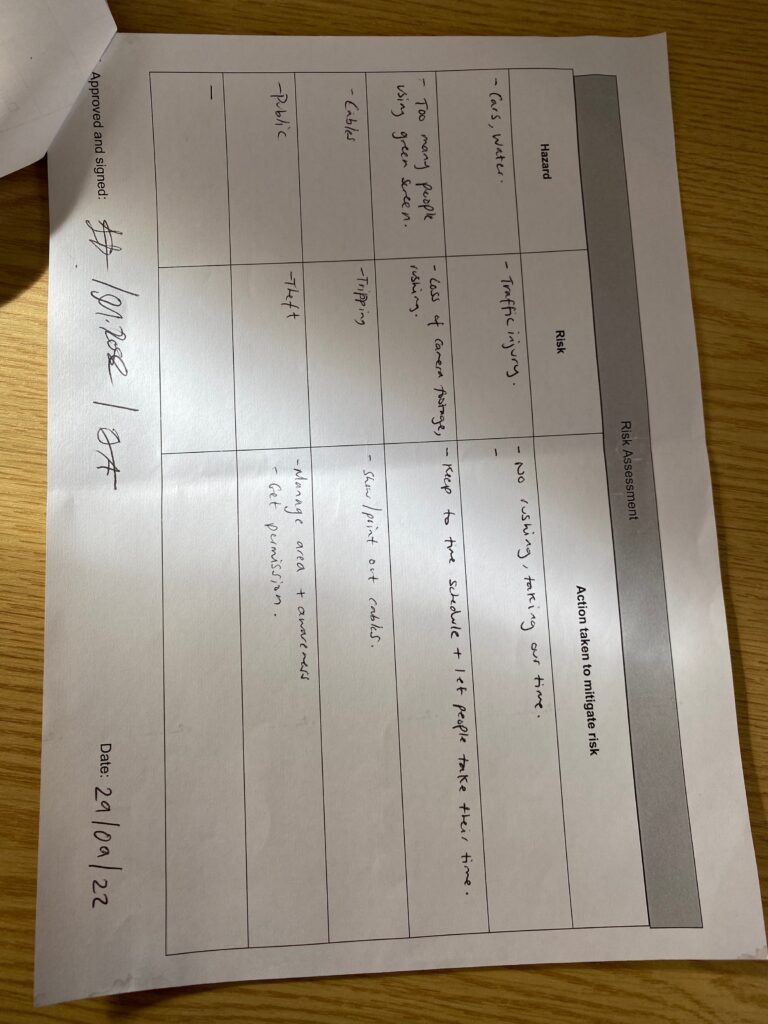 Risk Assessment
Hazard Risk Action taken to mitigate risk
- Cars, Water. - Traffic injury. - No rushing, taking our time.
-
- Too many people - Loss of camera footage, - Keep to time schedule + let people take their time.
using green screen. rushing.
- Cables - Tripping - Show/print out cables.
- Public - Theft - Manage area + awareness
- Get permission.
-
Approved and signed: Date: 29/09/22